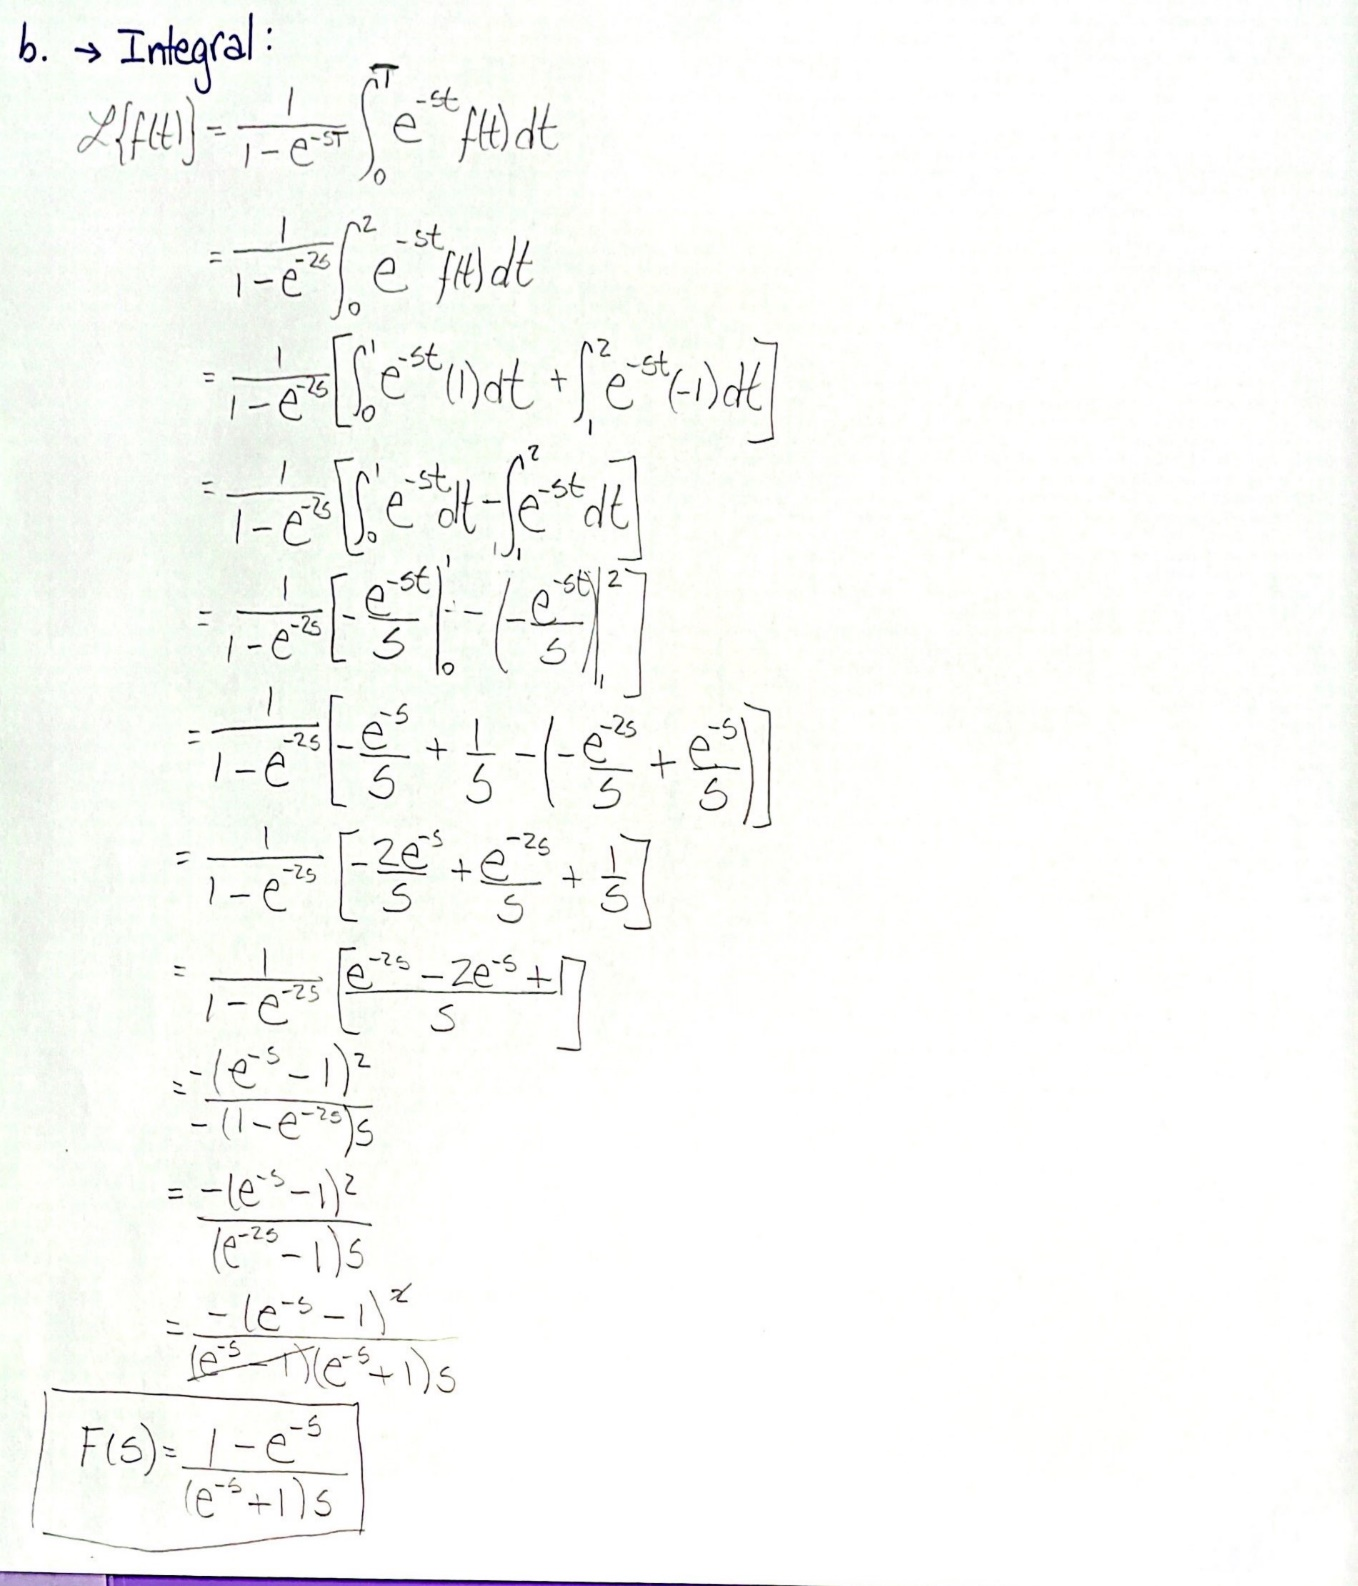 b. → Integral:
ℒ{f(t)} = \frac{1}{1-e^{-sT}} \int_0^T e^{-st} f(t) dt
= \frac{1}{1-e^{-2s}} \int_0^2 e^{-st} f(t) dt
= \frac{1}{1-e^{-2s}} [\int_0^1 e^{-st}(1)dt + \int_1^2 e^{-st}(-1)dt]
= \frac{1}{1-e^{-2s}} [\int_0^1 e^{-st}dt - \int_1^2 e^{-st}dt]
= \frac{1}{1-e^{-2s}} [-\frac{e^{-st}}{s}|_0^1 - (-\frac{e^{-st}}{s})|_1^2]
= \frac{1}{1-e^{-2s}} [-\frac{e^{-s}}{s} + \frac{1}{s} - (-\frac{e^{-2s}}{s} + \frac{e^{-s}}{s})]
= \frac{1}{1-e^{-2s}} [-\frac{2e^{-s}}{s} + \frac{e^{-2s}}{s} + \frac{1}{s}]
= \frac{1}{1-e^{-2s}} [\frac{e^{-2s} - 2e^{-s} + 1}{s}]
= \frac{-(e^{-s} - 1)^2}{-(1-e^{-2s})s}
= \frac{-(e^{-s} - 1)^2}{(e^{-2s} - 1)s}
= \frac{-(e^{-s} - 1)^2}{(e^{-s} - 1)(e^{-s} + 1)s}
F(s) = \frac{1 - e^{-s}}{(e^{-s} + 1)s}